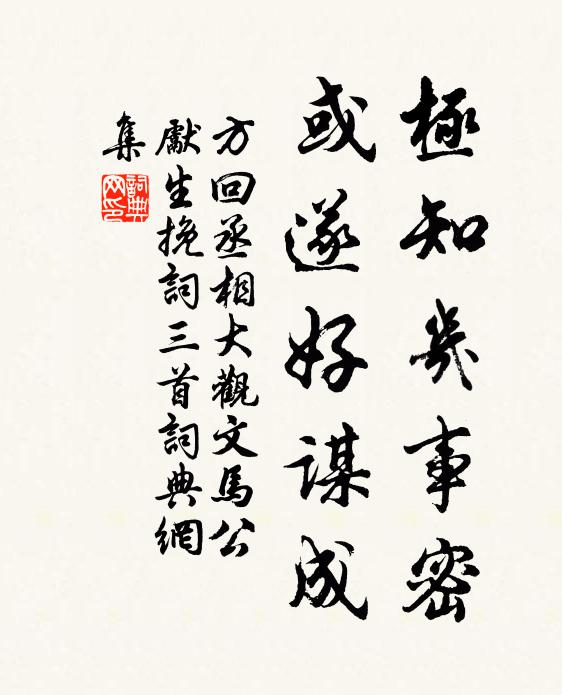 極知幾事密
或遂好謀成
方回丞相大觀文馬公
獻生挽詞三首詞典網
集
詞典
网印